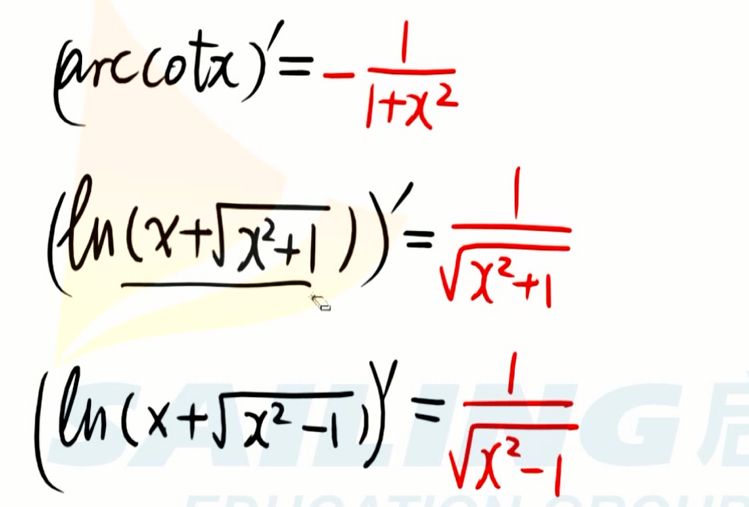 (arccotx)′ = - 1/(1+x²)
(ln(x+√(x²+1)))′ = 1/√(x²+1)
(ln(x+√(x²-1)))′ = 1/√(x²-1)
SAILING启
EDUCATION GROUP